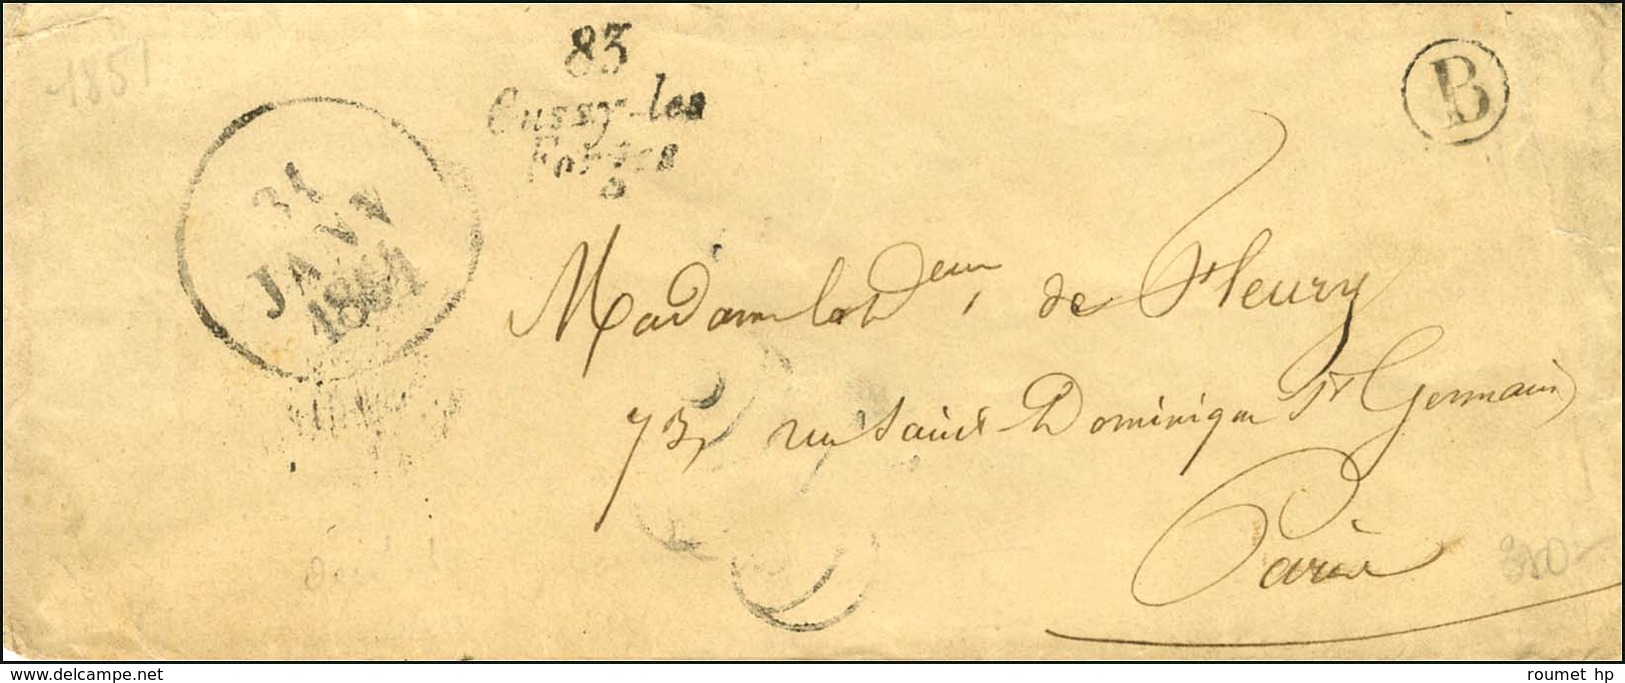 1851
83
B
Cussy-les
Forges
31
JANV
1854
Madame la Deur de Fleury
73, rue Saint Dominique St Germain
Paris
320-
www.delcampe.net
roumet hp